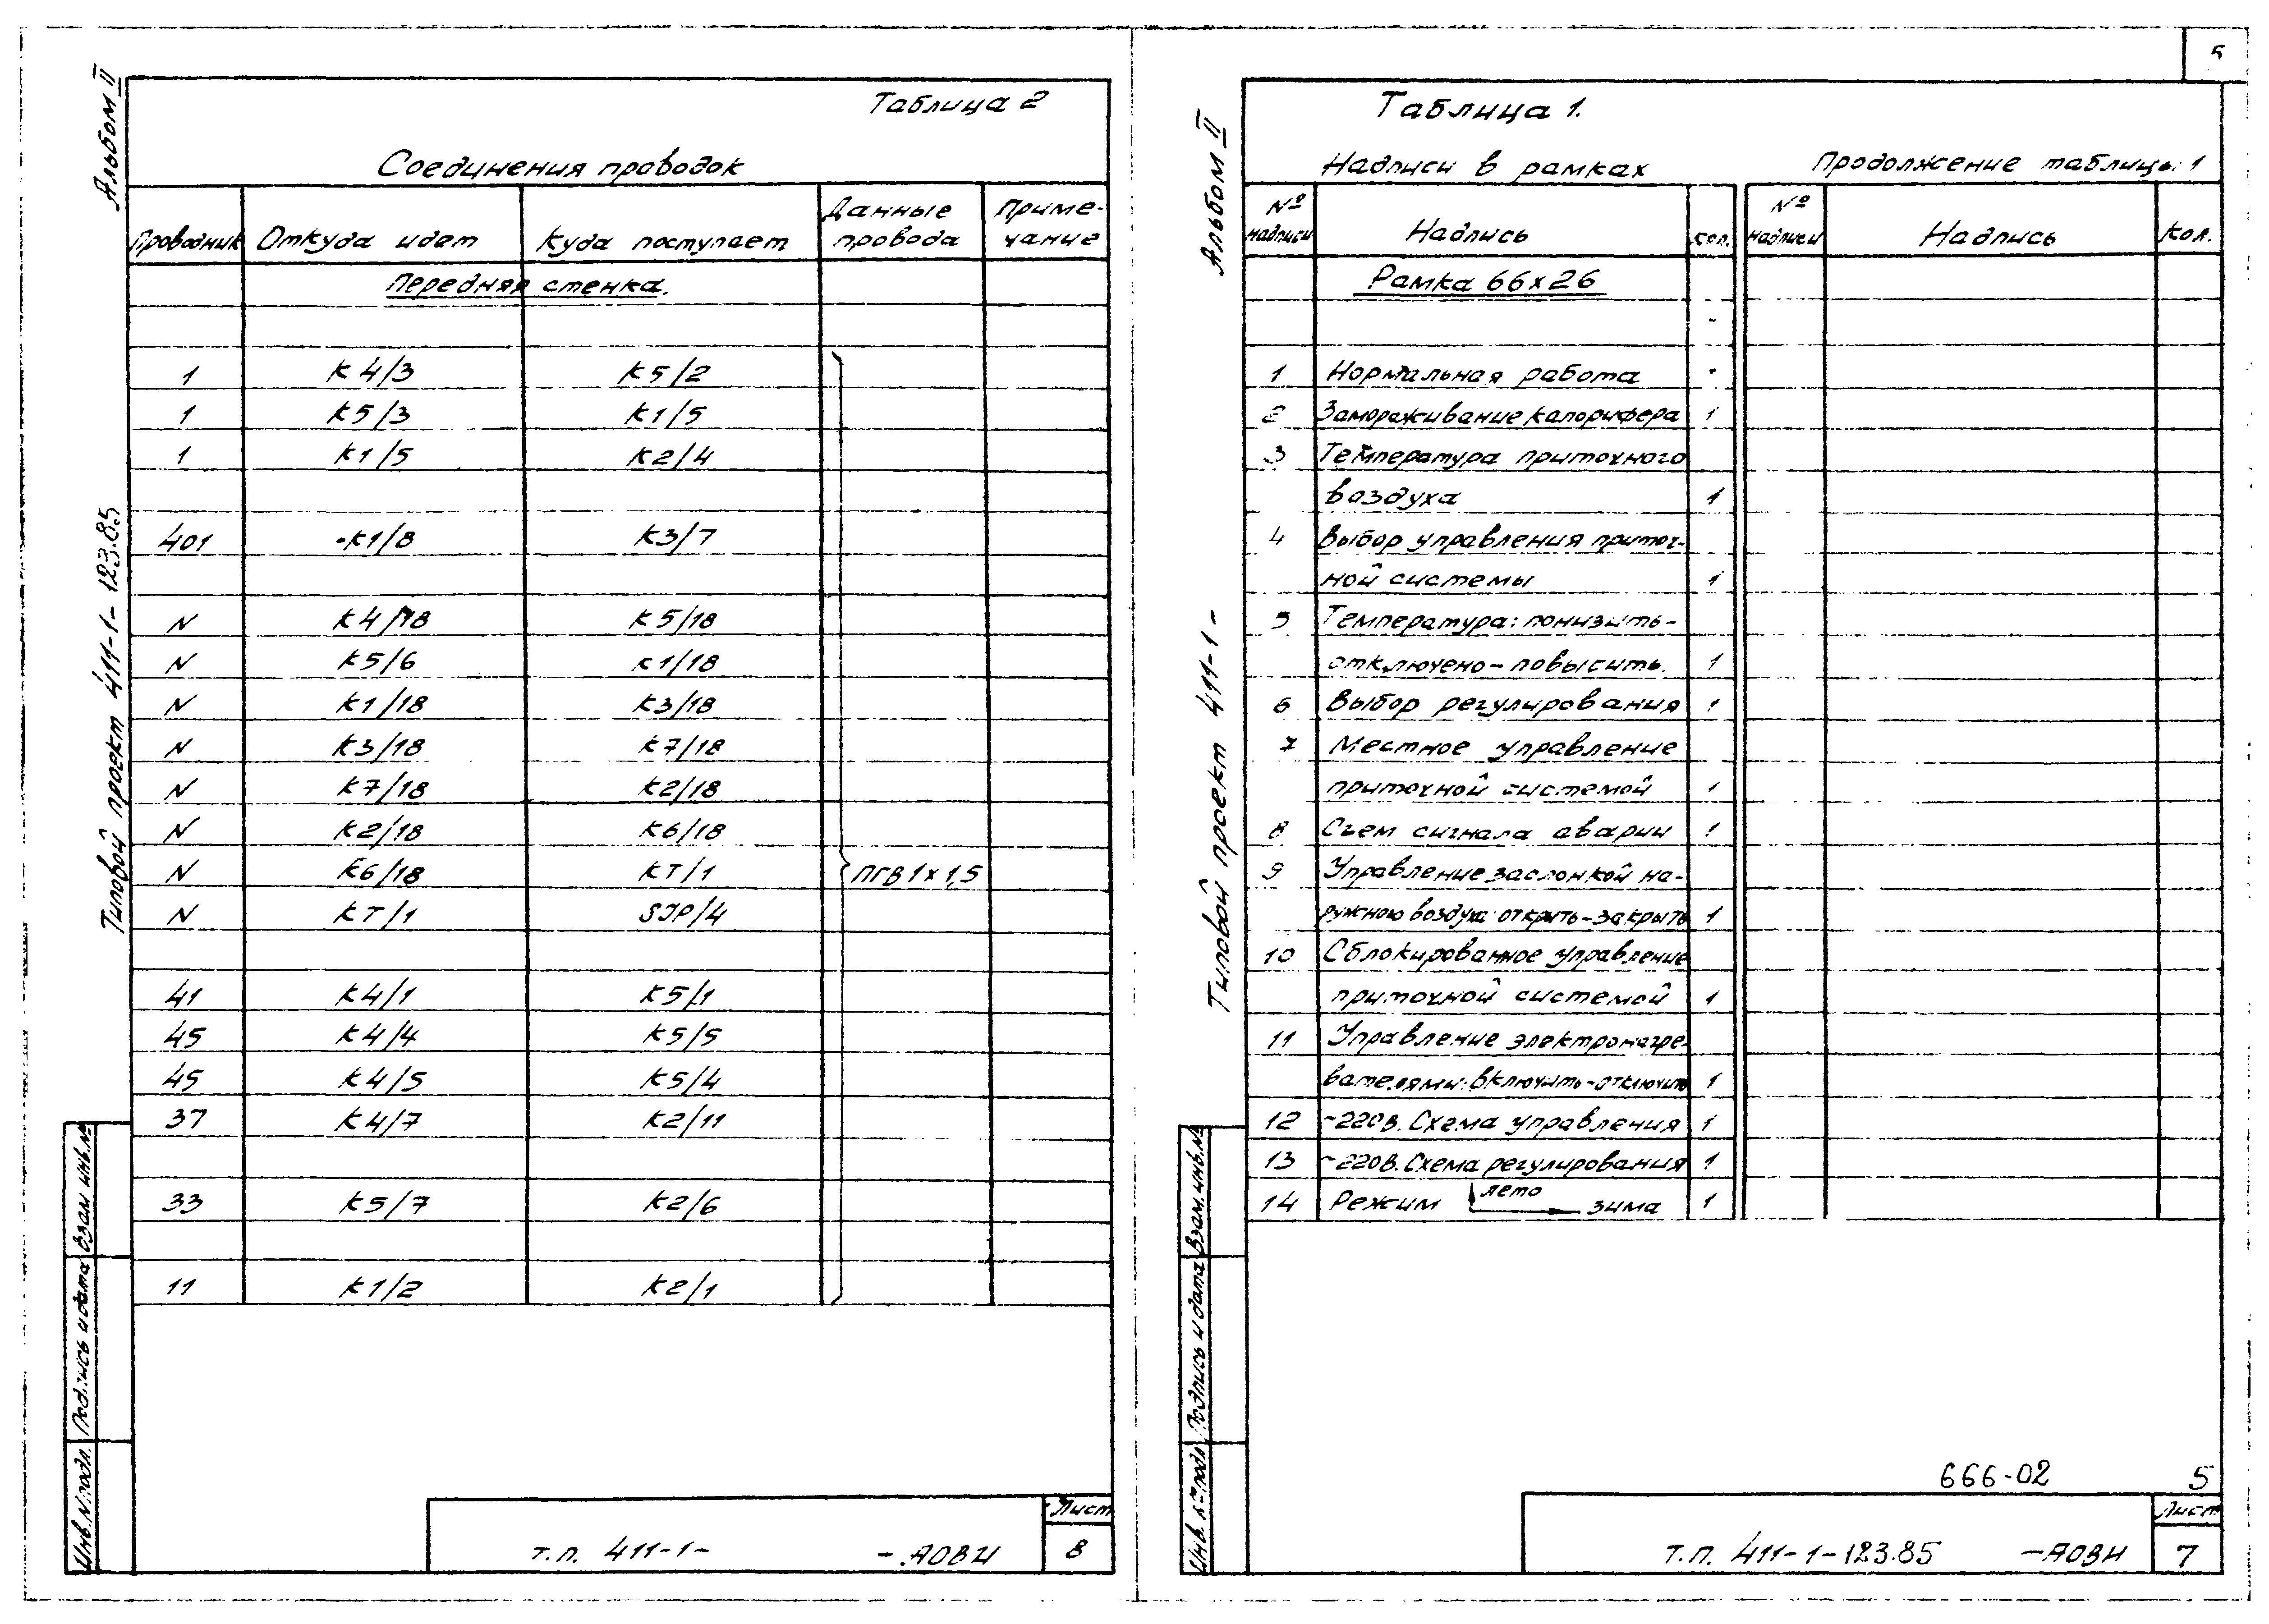 5
Альбом II
Типовой проект 411-1-123.85
Таблица 2
Соединения проводок
Проводник Откуда идет Куда поступает Данные провода Примечание
Передняя стенка.
1 К4/3 К5/2
1 К5/3 К1/5
1 К1/5 К2/4
401 К1/8 К3/7
N К4/18 К5/18
N К5/6 К1/18
N К1/18 К3/18
N К3/18 К7/18
N К7/18 К2/18
N К2/18 К6/18
N К6/18 КТ/1 ПГВ 1х1,5
N КТ/1 SJP/4
41 К4/1 К5/1
45 К4/4 К5/5
45 К4/5 К5/4
37 К4/7 К2/11
33 К5/7 К2/6
11 К1/2 К2/1
Инв.N подл. Подпись и дата Взам инв.№
т.п. 411-1- -АОВИ
Лист
8
Альбом II
Типовой проект 411-1-
Таблица 1.
Надписи в рамках
Продолжение таблицы 1
№ надписи Надпись Кол. № надписи Надпись Кол.
Рамка 66х26
1 Нормальная работа
2 Замораживание калорифера 1
3 Температура приточного
воздуха 1
4 Выбор управления приточ-
ной системы 1
5 Температура: понизить-
отключено-повысить. 1
6 Выбор регулирования 1
7 Местное управление
приточной системой 1
8 Съем сигнала аварии 1
9 Управление заслонкой на-
ружного воздуха: открыть-закрыть 1
10 Сблокированное управление
приточной системой 1
11 Управление электронагре-
вателями: включить-отключить 1
12 ~220в. Схема управления 1
13 ~220в. Схема регулирования 1
14 Режим лето зима 1
Инв. № подл. Подпись и дата Взам.инв.№
666-02 5
Т.П. 411-1-123.85 -АОВИ
Лист
7